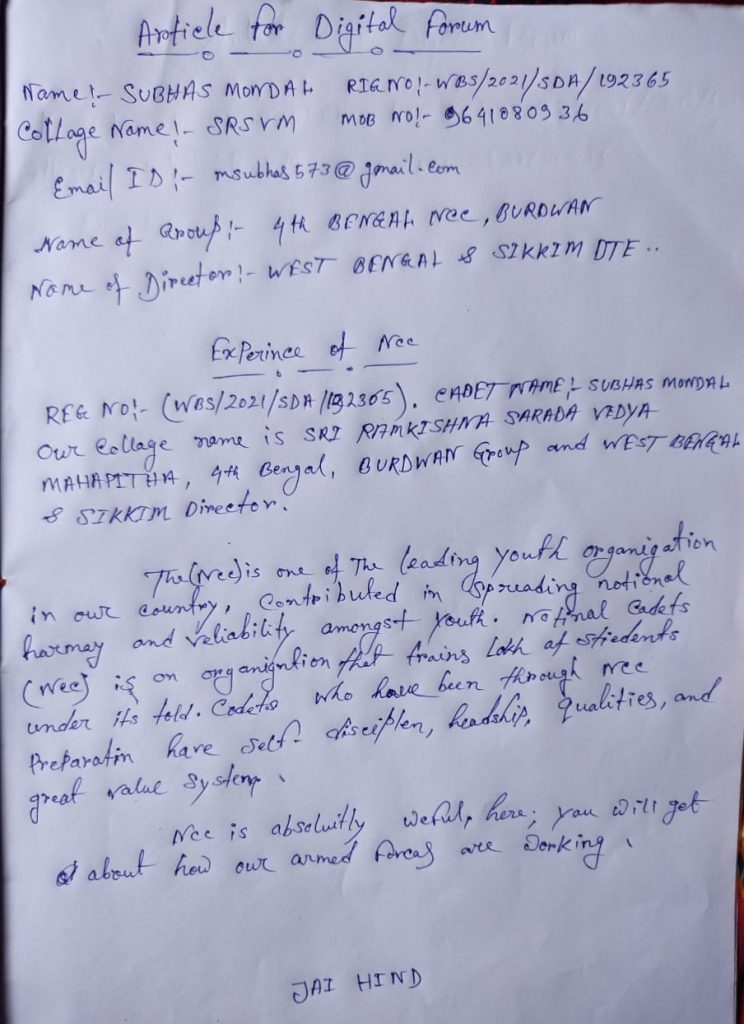 Article for Digital Forum
Name:- SUBHAS MONDAL RIGNO:- WBS/2021/SDA/192365
Collage Name:- SRSVM MOB NO:- 9641080936
Email ID:- msubhas573@gmail.com
Name of Group:- 4th BENGAL Ncc, BURDWAN
Name of Director:- WEST BENGAL & SIKKIM DTE..
ExPerince of Ncc
REG NO:- (WBS/2021/SDA/192365). CADET NAME:- SUBHAS MONDAL
Our Collage name is SRI RAMKISHNA SARADA VIDYA
MAHAPITHA, 4th Bengal, BURDWAN Group and WEST BENGAL
& SIKKIM Director.
The (Ncc) is one of The leading youth organigation
in our country, Contributed in Spreading notional
harmay and reliability amongst youth. Notinal Cadets
(Ncc) is on organigntion that trains Lakh of stiedents
under its told. Cadets who have been through Ncc
Preparatin have self- disciplen, headship, qualities, and
great value system.
Ncc is absoluitly useful, here; you will get
about how our armed forcas are working.
JAI HIND